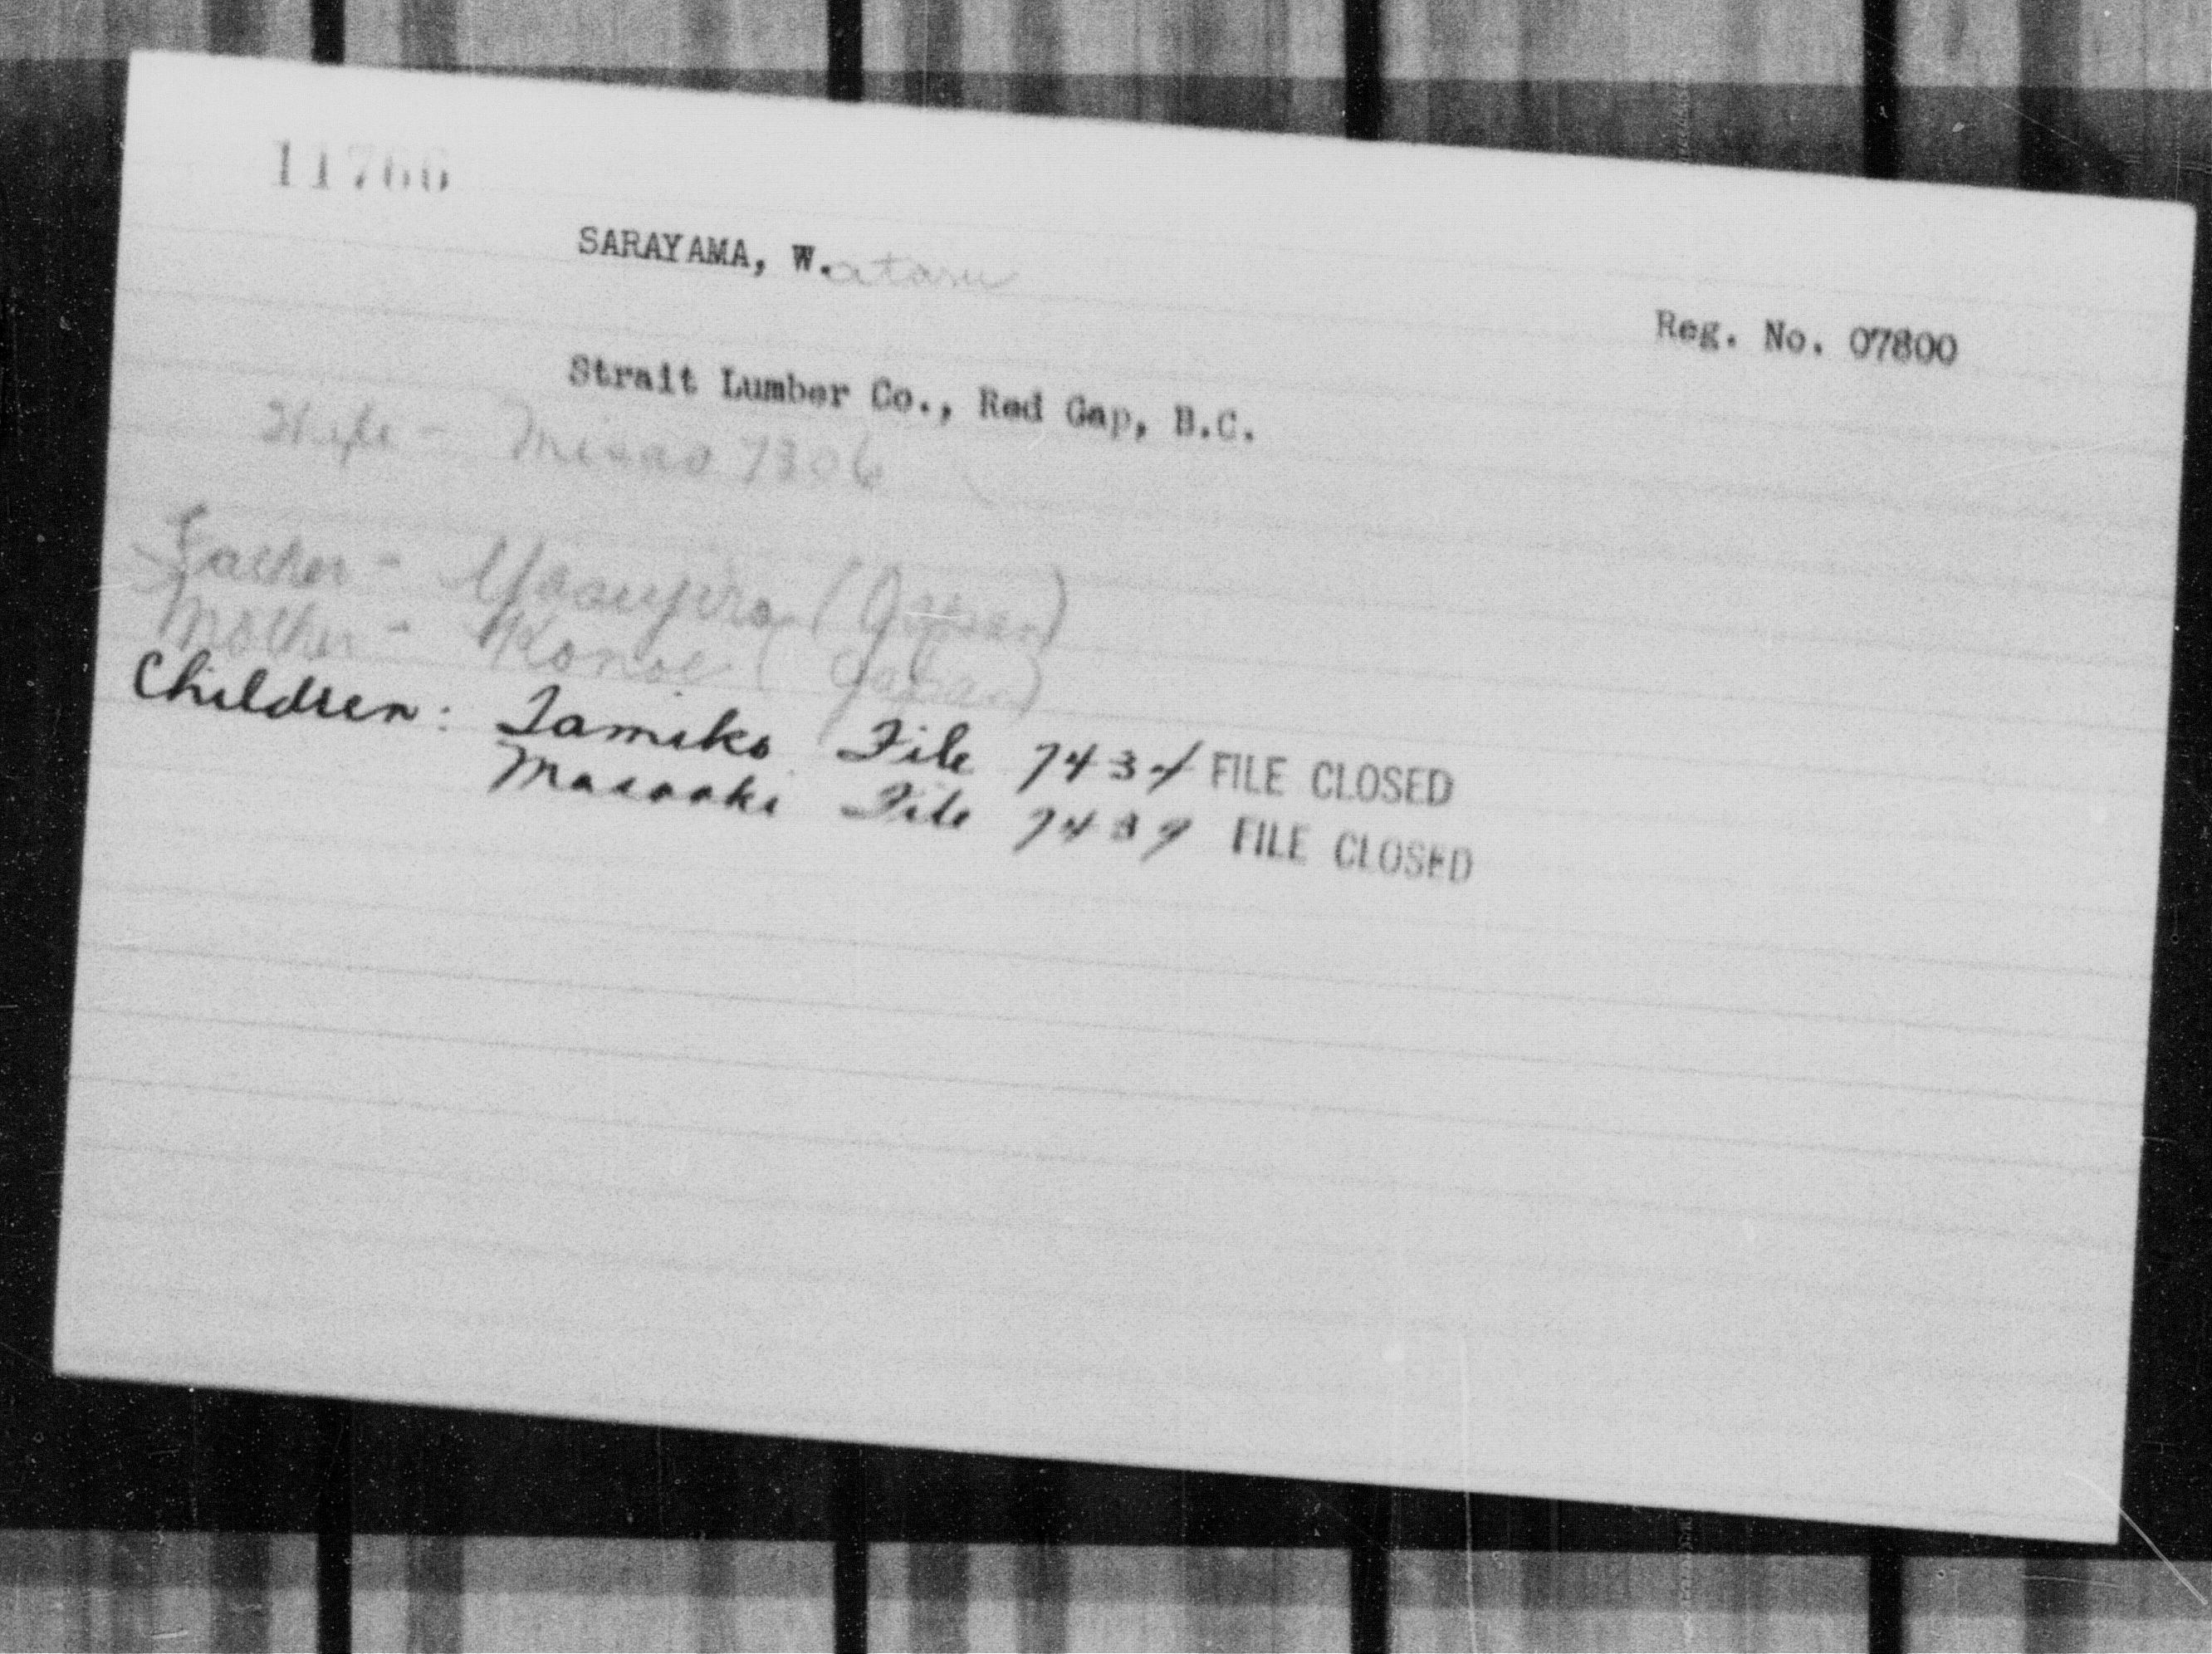 11766
SARAYAMA, W.ataru
Reg. No. 07800
Strait Lumber Co., Red Gap, B.C.
Wife - Misao 7306
Father - (Japan)
Mother - (Japan)
Children: Tamiko File FILE CLOSED
Masaaki File 7439 FILE CLOSED